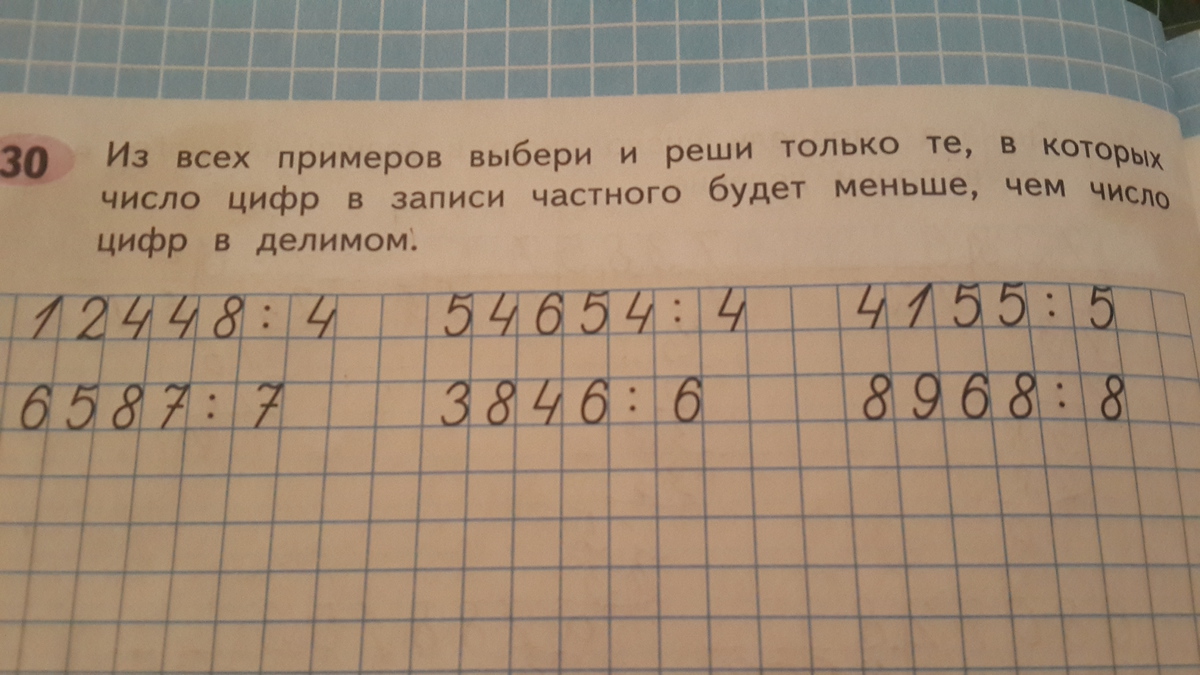 30 Из всех примеров выбери и реши только те, в которых
число цифр в записи частного будет меньше, чем число
цифр в делимом.
12448 : 4 54654 : 4 4155 : 5
6587 : 7 3846 : 6 8968 : 8